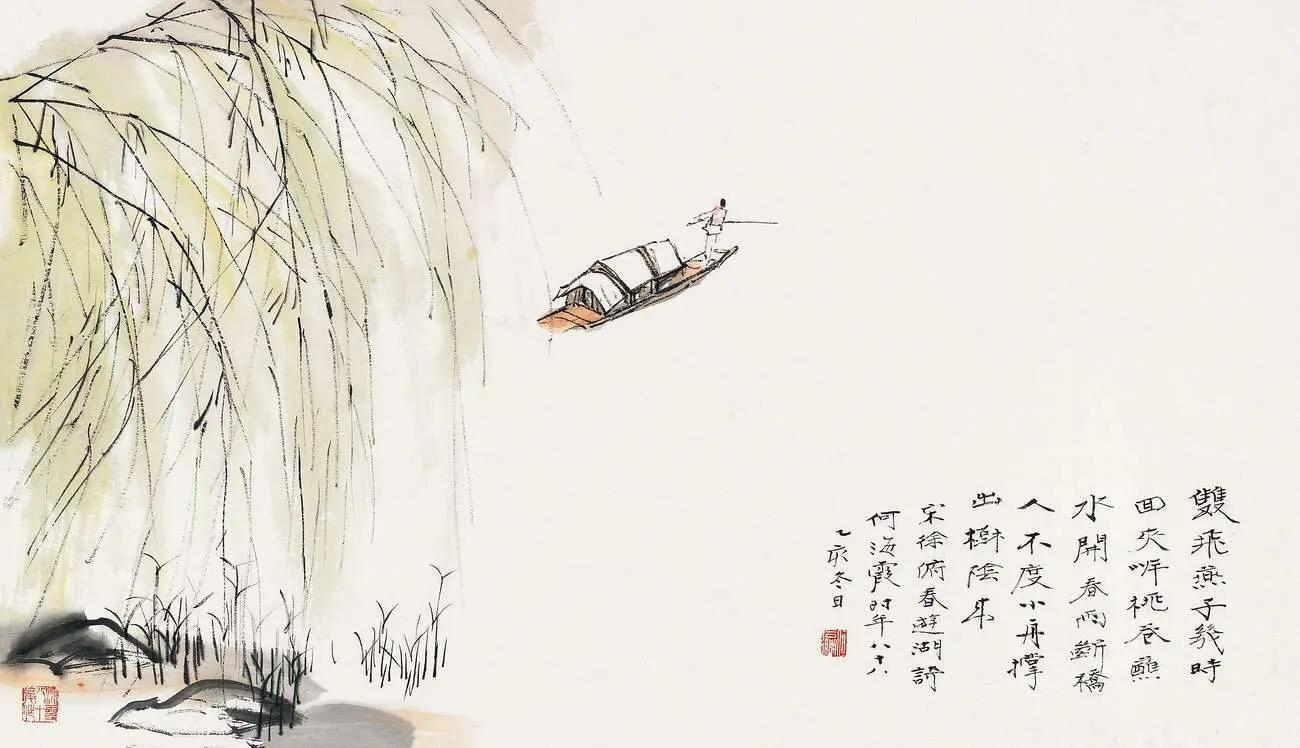 雙飛燕子幾時
回夾岸桃花蘸
水開春雨斷橋
人不度小舟撐
出樹陰來
宋徐俯春遊湖詩
何海霞时年八十八
乙亥冬日